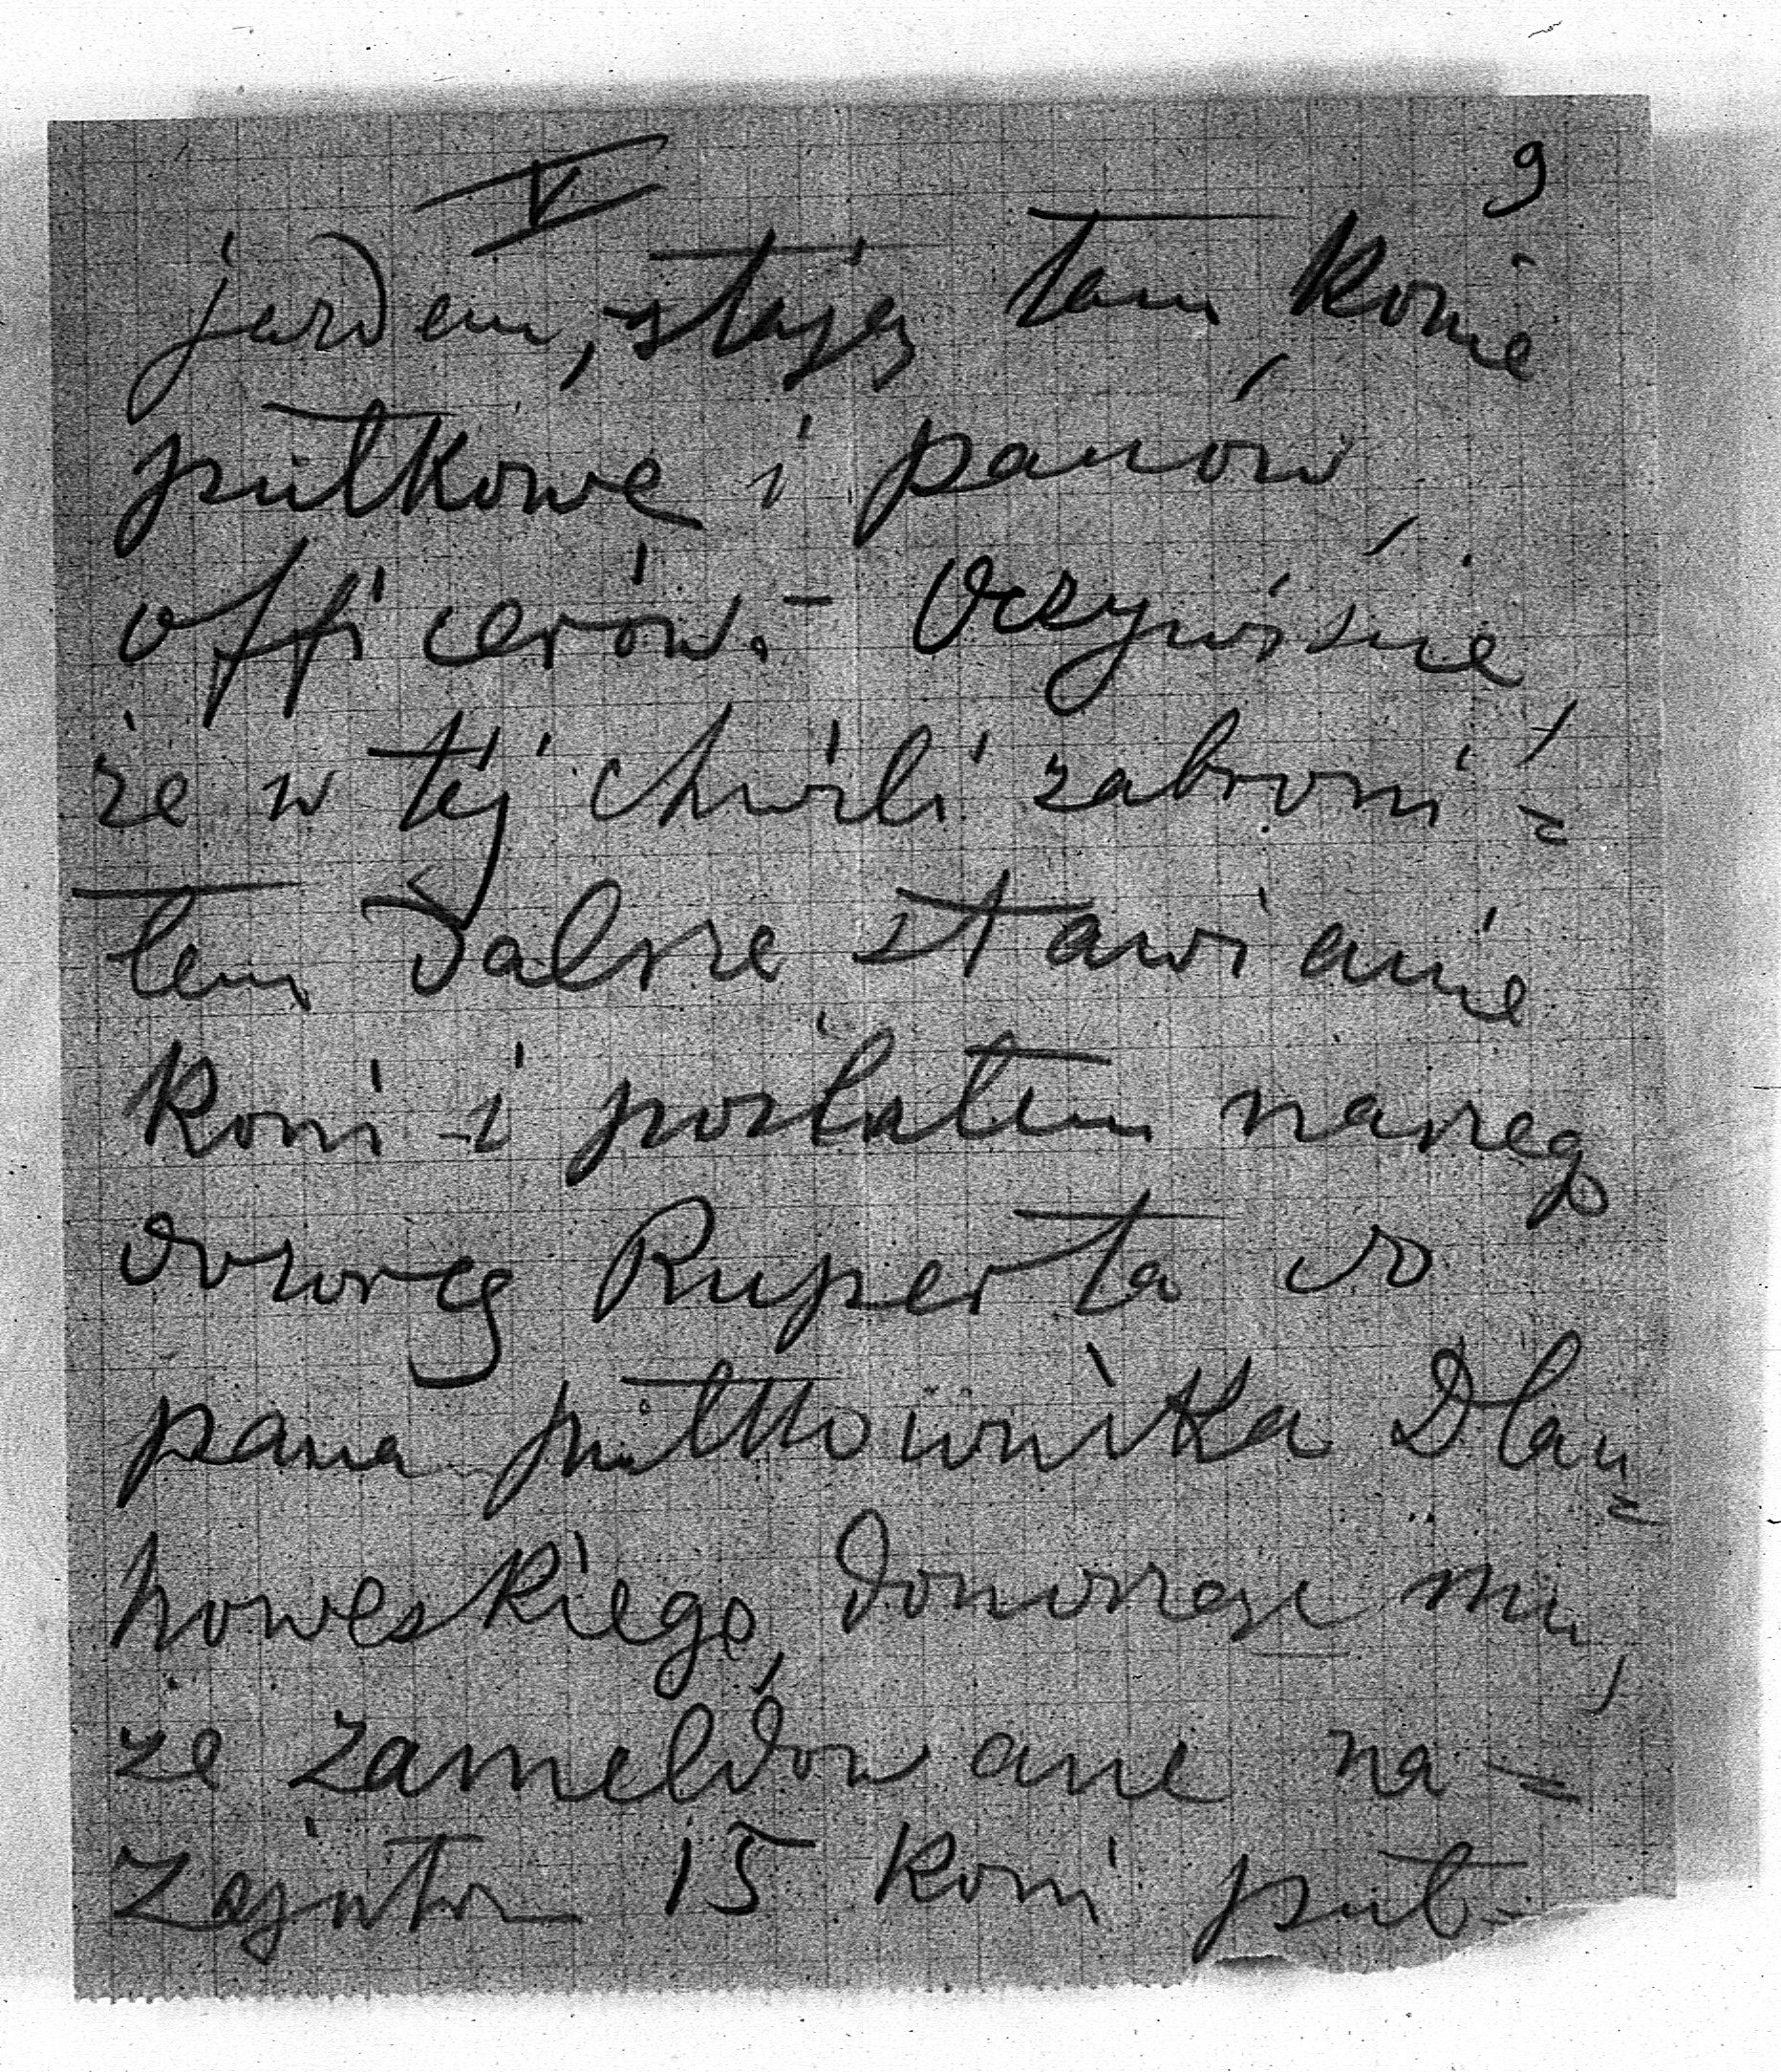 V 9
jardem, stają tam konie
pułkowe i panów
officerów. – Oczywiście,
że w tej chwili zabroni=
łem dalsze stawianie
koni i posłałem naszego
dozorcę Ruperta do
pana pułkownika Dłau=
howeskiego, donosząc mu,
że zameldowane na=
zajutrz 15 koni puł-